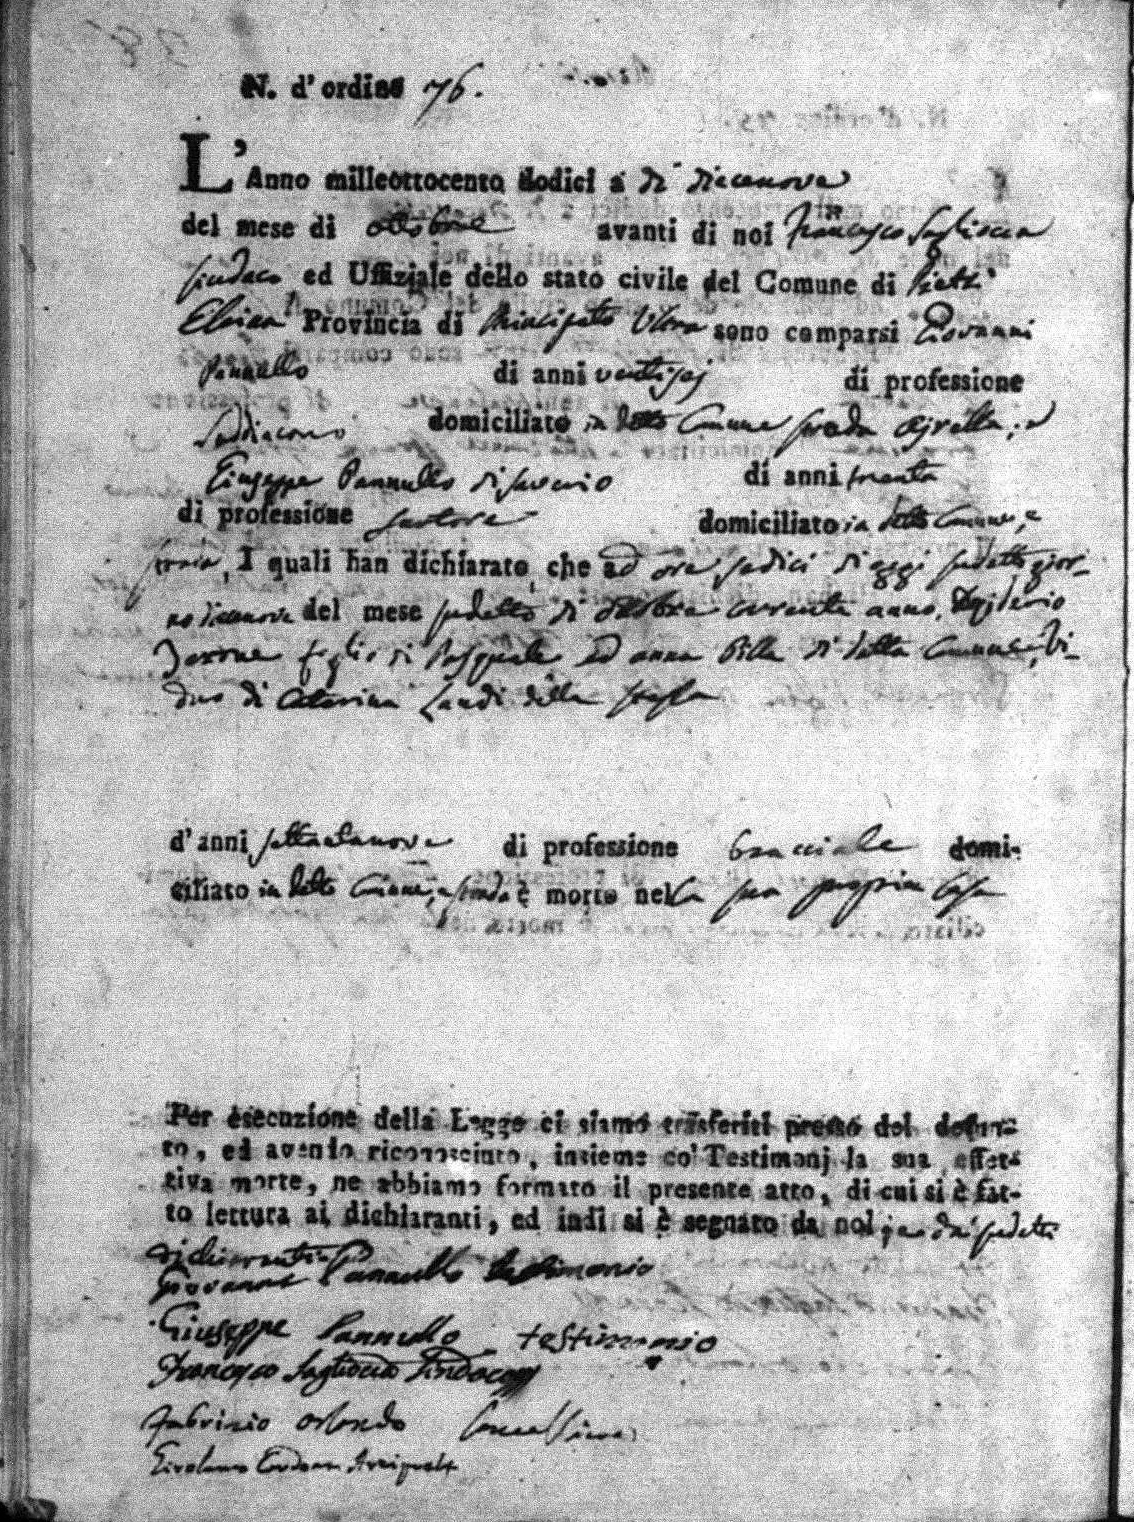 N. d'ordine 76.
L'Anno milleottocento dodici a dì diecenove
del mese di ottobre avanti di noi Francesco Saglioccia
Sindaco ed Uffiziale dello stato civile del Comune di
Provincia di Principato Ultra sono comparsi Giovanni
Pannullo di anni ventisei di professione
Suddiacono domiciliato in detto Comune strada e
Giuseppe Pannullo di Saverio di anni trenta
di professione sartore domiciliato in detto Comune, e
strada, I quali han dichiarato, che ad ore sedici di oggi sudetto gior-
no diecenove del mese sudetto di ottobre corrente anno, Desiderio
Iarrone figlio di Pasquale ed Anna Billa di detta Comune, vi-
duo di Catarina Landi della stessa
d'anni settantanove di professione bracciale domi-
ciliato in detto Comune, e strada è morto nella sua propria Casa
Per esecuzione della Legge ci siamo trasferiti presso del defun-
to, ed avendo riconosciuto, insieme co' Testimonj la sua effet-
tiva morte, ne abbiamo formato il presente atto, di cui si è fat-
to lettura ai dichiaranti, ed indi si è segnato da noi, e da' sudetti
dichiaranti
Giovanni Pannullo testimonio
Giuseppe Pannullo testimonio
Francesco Saglioccia Sindaco
Fabrizio Orlando Cancelliere
Girolamo